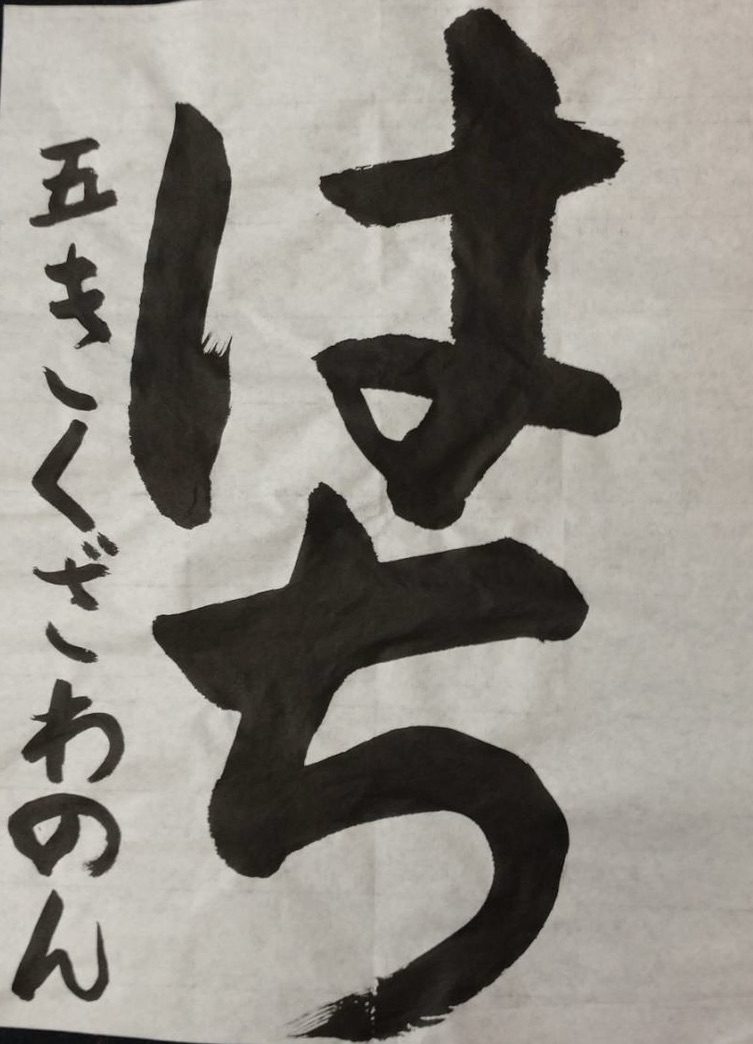 はち
五きくざわのん